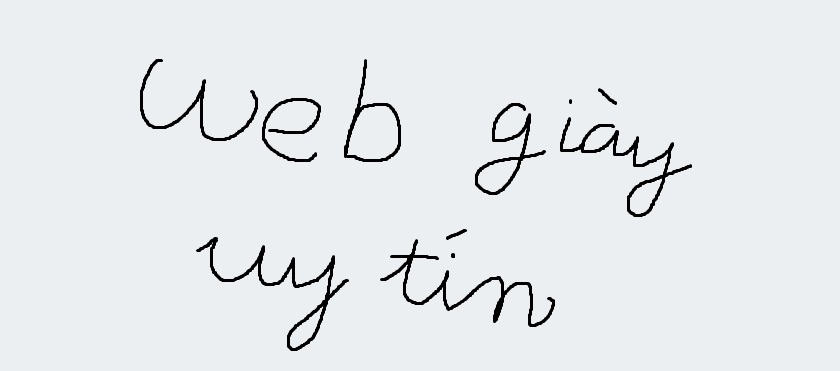 web giày
uy tín